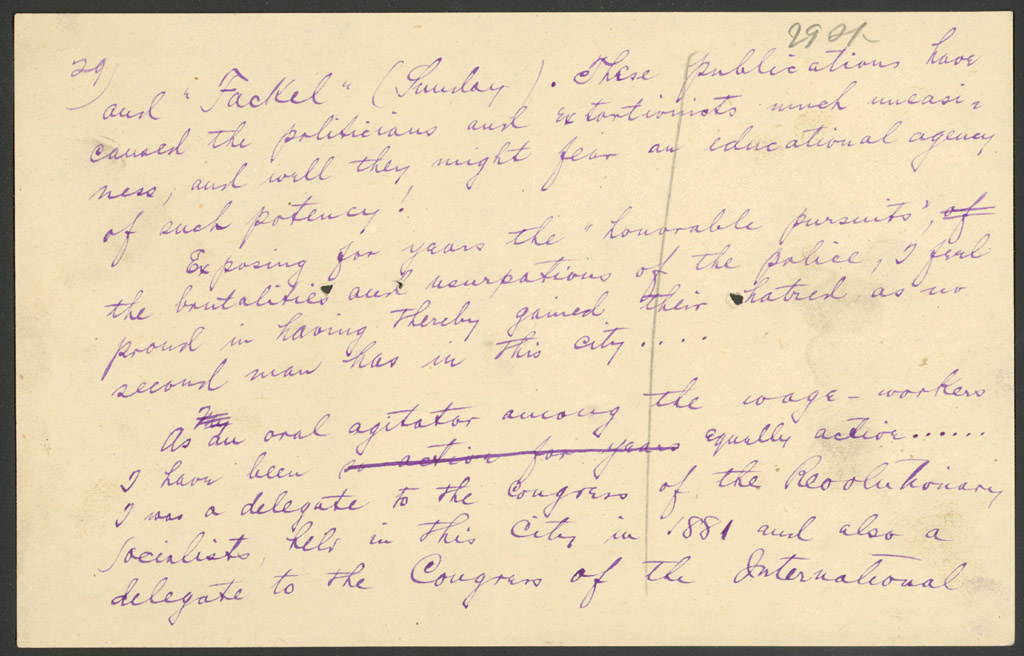 29 21-
29)
and "Fackel" (Sunday). These publications have
caused the politicians and extortionists much uneasi=
ness, and well they might fear an educational agency
of such potency!
Exposing for years the "honorable pursuits", of
the brutalities and usurpations of the police, I feel
proud in having thereby gained their hatred as no
second man has in this city....
As an oral agitator among the wage-workers
I have been so active for years equally active......
I was a delegate to the Congress of the Revolutionary
Socialists, held in this City in 1881 and also a
delegate to the Congress of the International